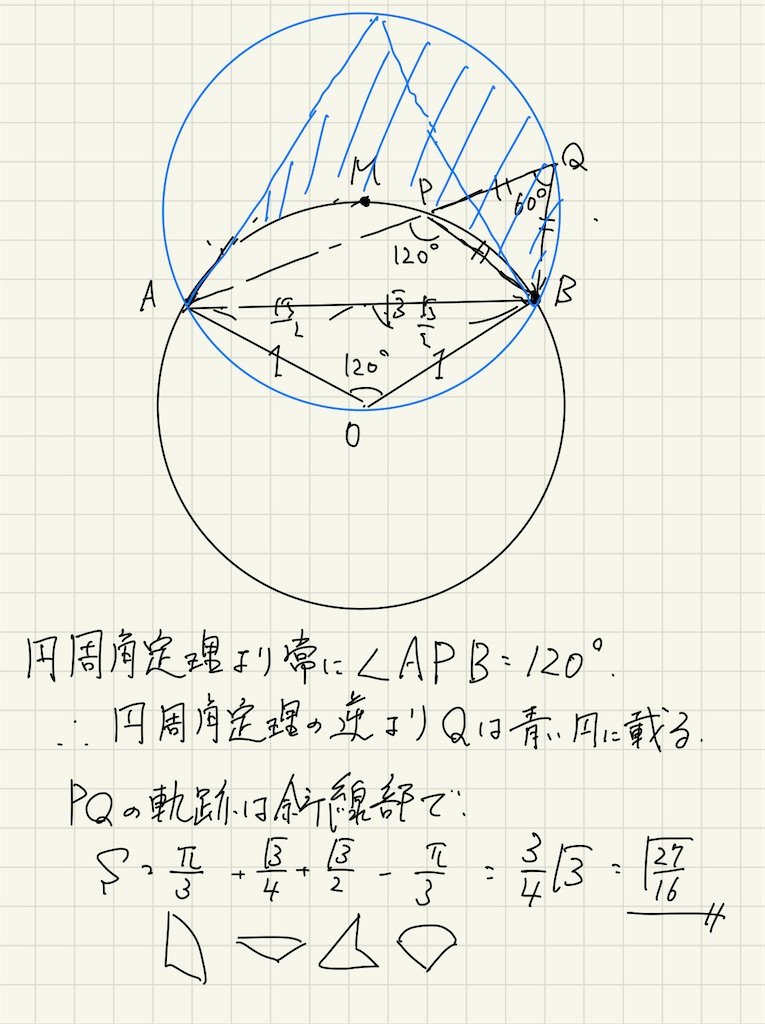 M
Q
P
60°
120°
A
B
√3/2
√3
√3/2
1
120°
1
O
円周角定理より常に∠APB=120°.
∴ 円周角定理の逆よりQは青い円に載る.
PQの軌跡は斜線部で.
S = π/3 + √3/4 + √3/2 - π/3 = 3/4 √3 = √27/16